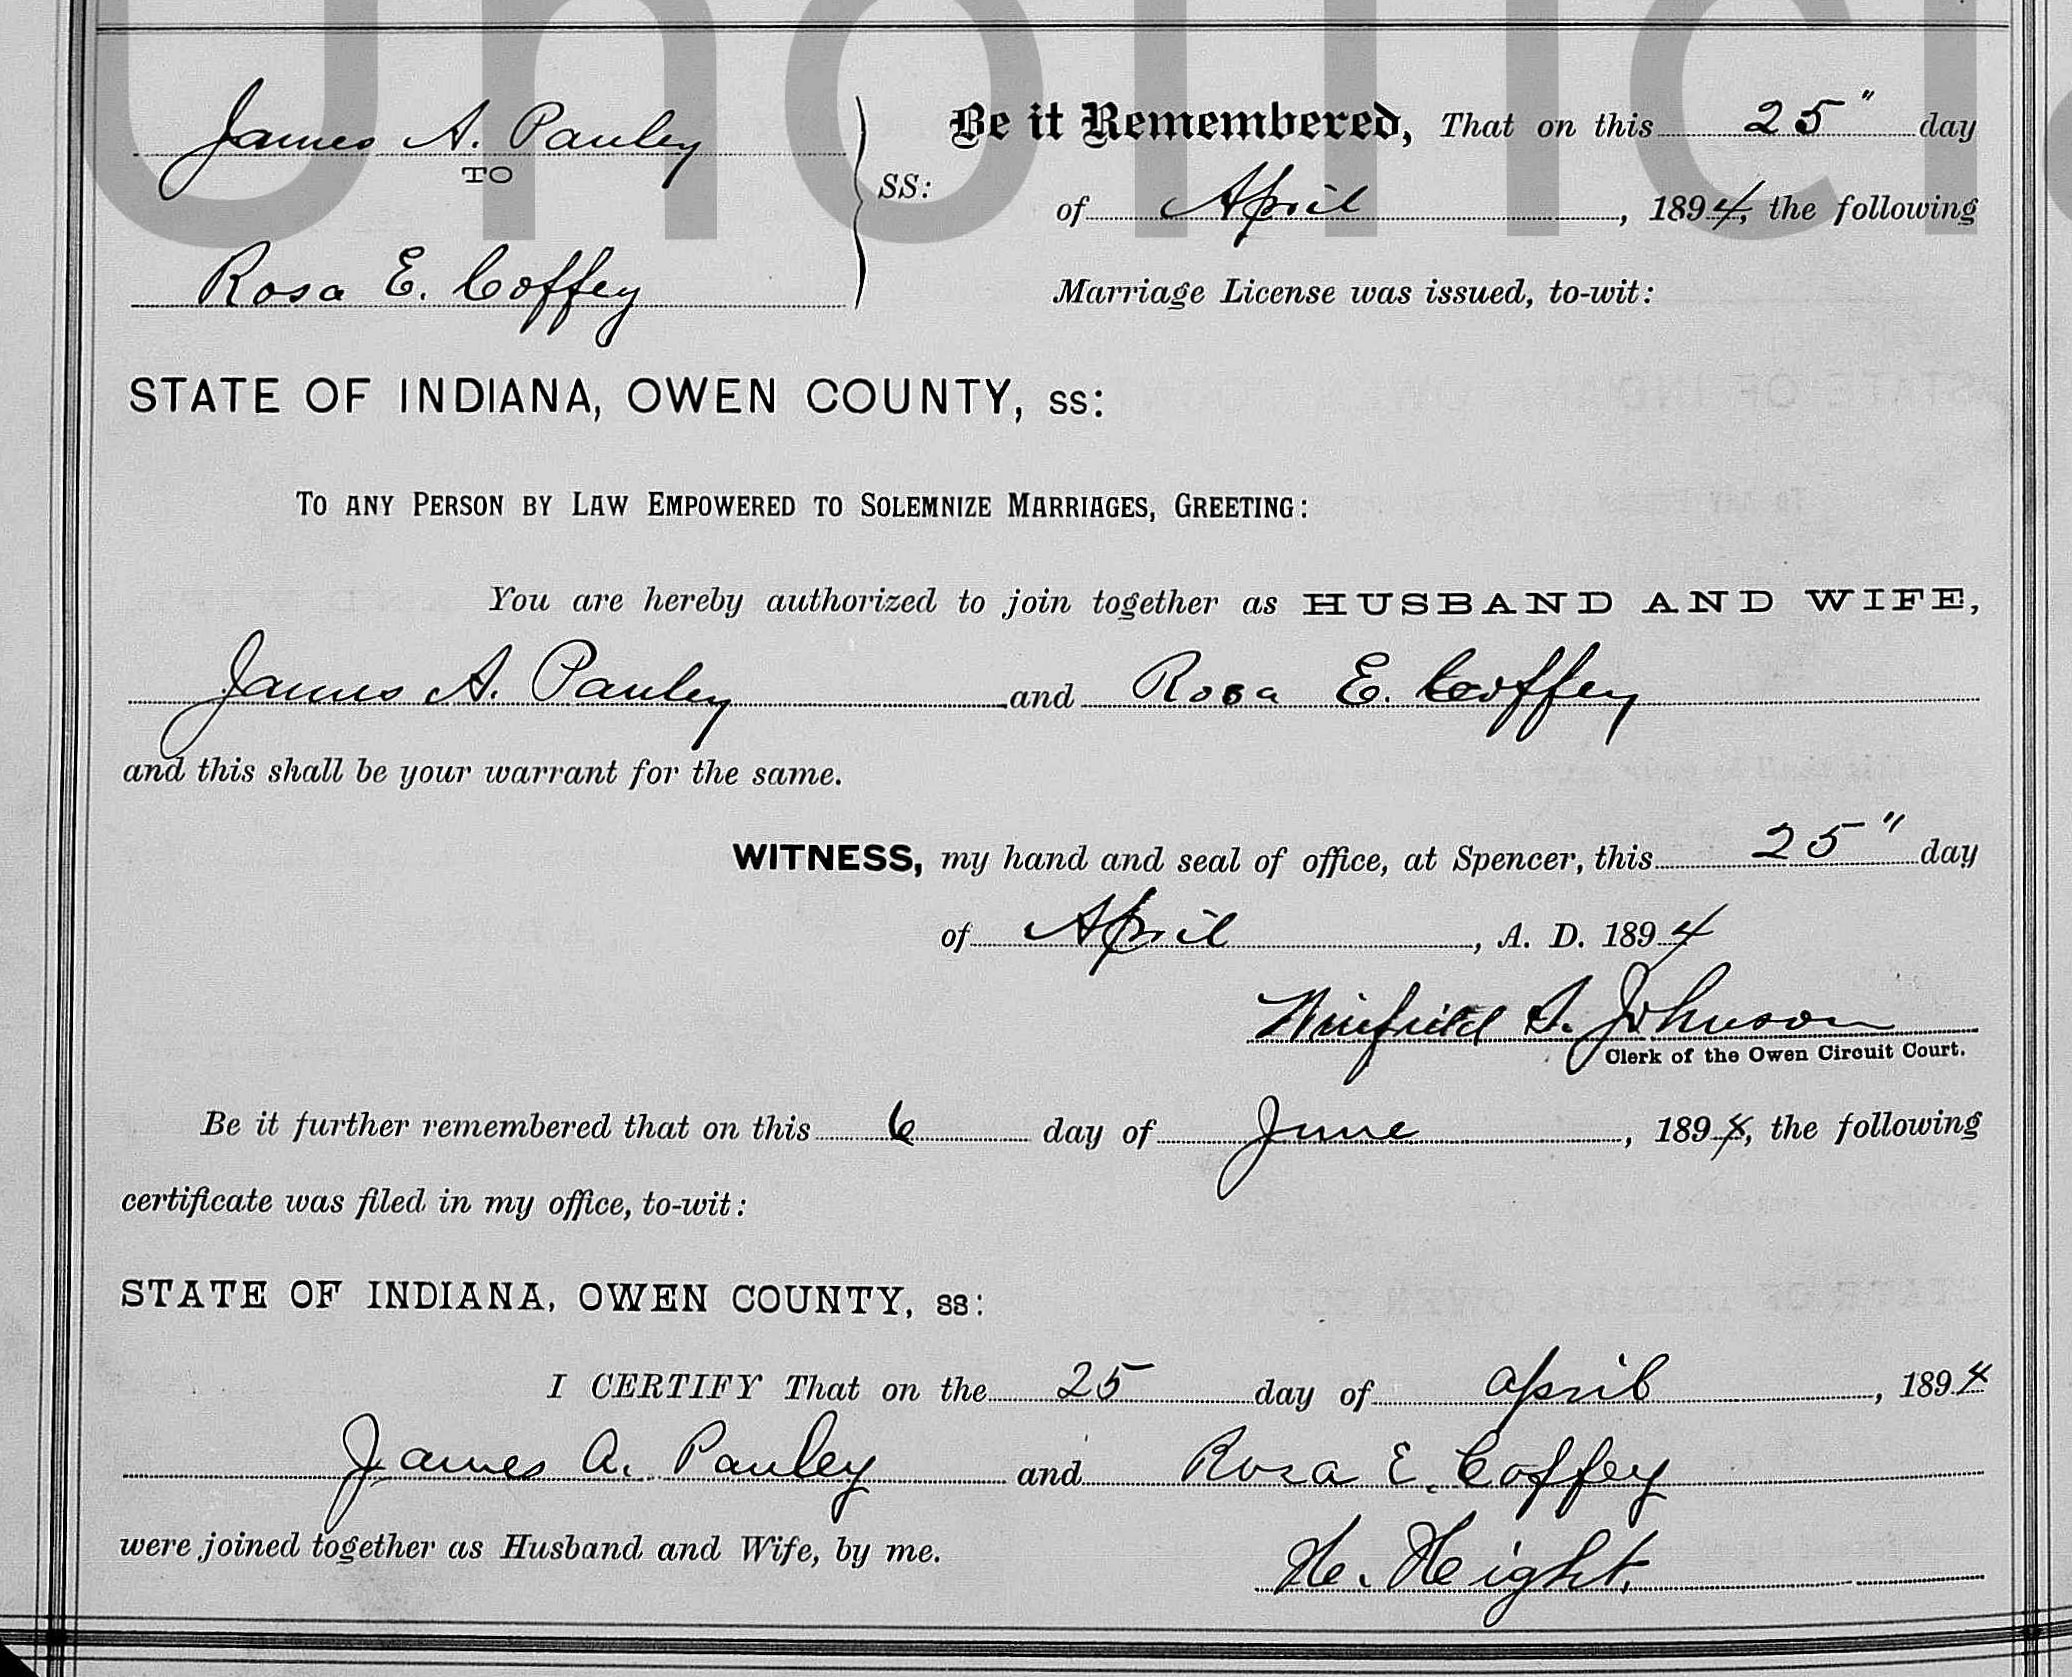 Unofficia
James A. Pauley
TO
Rosa E. Coffey
SS:
Be it Remembered, That on this 25" day
of April, 1894, the following
Marriage License was issued, to-wit:
STATE OF INDIANA, OWEN COUNTY, ss:
TO ANY PERSON BY LAW EMPOWERED TO SOLEMNIZE MARRIAGES, GREETING:
You are hereby authorized to join together as HUSBAND AND WIFE,
James A. Pauley and Rosa E. Coffey
and this shall be your warrant for the same.
WITNESS, my hand and seal of office, at Spencer, this 25" day
of April, A. D. 1894
Winfield S. Johnson
Clerk of the Owen Circuit Court.
Be it further remembered that on this 6 day of June, 1894, the following
certificate was filed in my office, to-wit:
STATE OF INDIANA, OWEN COUNTY, ss:
I CERTIFY That on the 25 day of April, 1894
James A. Pauley and Rosa E. Coffey
were joined together as Husband and Wife, by me.
H. Hight.